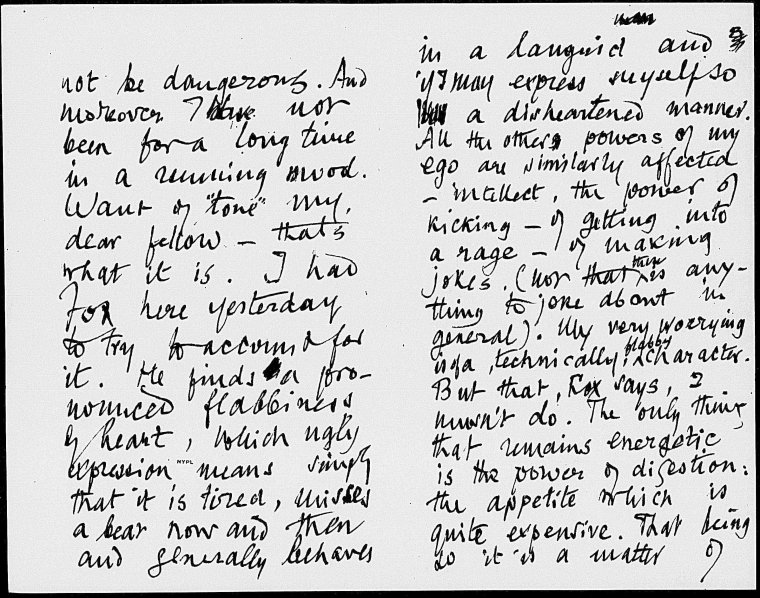 not be dangerous. And
moreover I have not
been for a long time
in a running mood.
Want of "tone" my
dear fellow – that's
what it is. I had
Fox here yesterday
to try to account for
it. He finds a pro-
nounced flabbiness
of heart, which ugly
expression means simply
NYPL
that it is tired, misses
a beat now and then
and generally behaves
in a languid and
if I may express myself so
a disheartened manner.
All the other powers of my
ego are similarly affected
– intellect, the power of
kicking – of getting into
a rage – of making
jokes. (nor that there is any-
thing to joke about in
general). My very worrying
is of a, technically, flabby character.
But that, Fox says, I
musn't do. The only thing
that remains energetic
is the power of digestion:
the appetite which is
quite expensive. That being
so it is a matter of